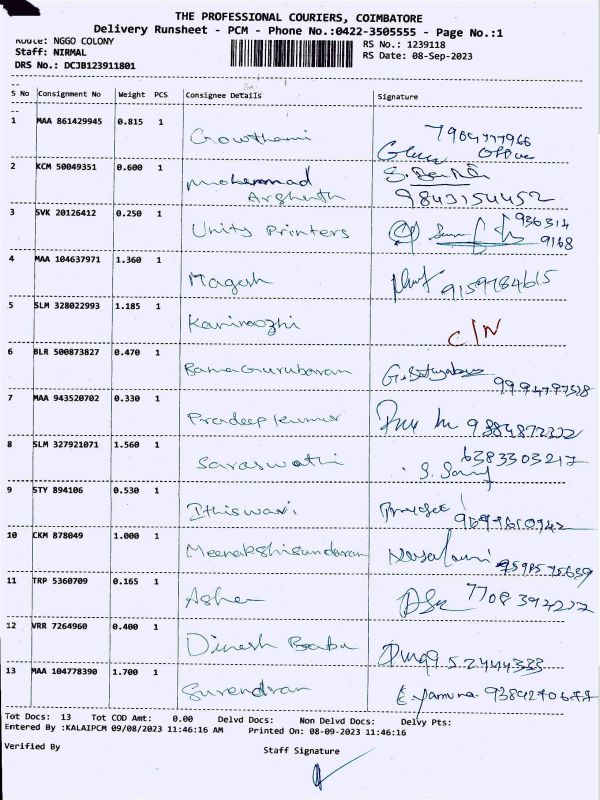 THE PROFESSIONAL COURIERS, COIMBATORE
Delivery Runsheet - PCM - Phone No.:0422-3505555 - Page No.:1
Route: NGGO COLONY RS No.: 1239118
Staff: NIRMAL RS Date: 08-Sep-2023
DRS No.: DCJB123911801
S No Consignment No Weight PCS Consignee Details Signature
1 MAA 861429945 0.815 1 Gowthami
Office
2 KCM 50049351 0.600 1 Mohammad
9843154452
3 SVK 20126412 0.250 1 Unity Printers 936314
9168
4 MAA 104637971 1.360 1 Magesh 9159784615
5 SLM 328022993 1.185 1 Kanimozhi C/N
6 BLR 500873827 0.470 1 Rama Gurubaran
7 MAA 943520702 0.330 1 Pradeep Kumar
8 SLM 327921071 1.560 1 Saraswathi 6383303217
9 STY 894106 0.530 1
10 CKM 878049 1.000 1 Meenakshisundaram
11 TRP 5360709 0.165 1 Asher 7708392212
12 VRR 7264960 0.400 1 Dinesh Babu
13 MAA 104778390 1.700 1 Surendran E. Yamuna
Tot Docs: 13 Tot COD Amt: 0.00 Delvd Docs: Non Delvd Docs: Delvy Pts:
Entered By :KALAIPCM 09/08/2023 11:46:16 AM Printed On: 08-09-2023 11:46:16
Verified By Staff Signature